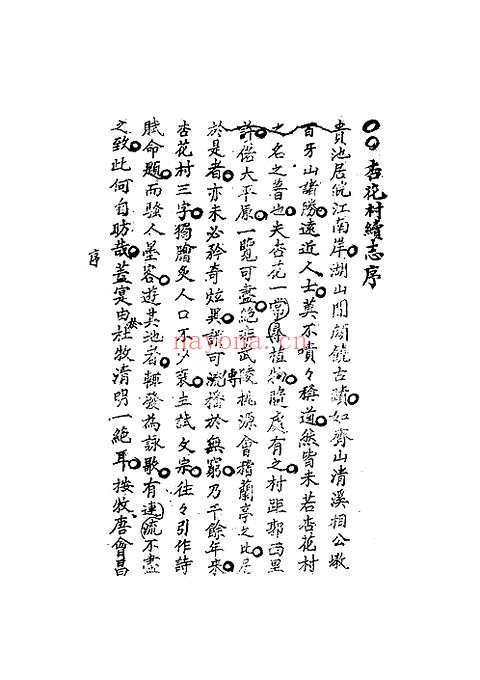 杏花村續志序
貴池居皖江南岸湖山間闊饒古蹟如齊山清溪相公墩
百牙山諸勝遠近人士莫不嘖々稱道然皆未若杏花村
之名之普也夫杏花一常尋植物隨處有之村距郭西里
許僅大平原一覽可盡絕非武陵桃源會稽蘭亭之比居
於是者亦未必矜奇炫異詎可流傳播於無窮乃千餘年來
杏花村三字獨膾炙人口不少衰主試文宗往々引作詩
賦命題而騷人墨客遊其池者輒發為詠歌有連流不盡
之致此何自昉哉蓋寔由於杜牧清明一絕耳按牧唐會昌
序
nayona.cn